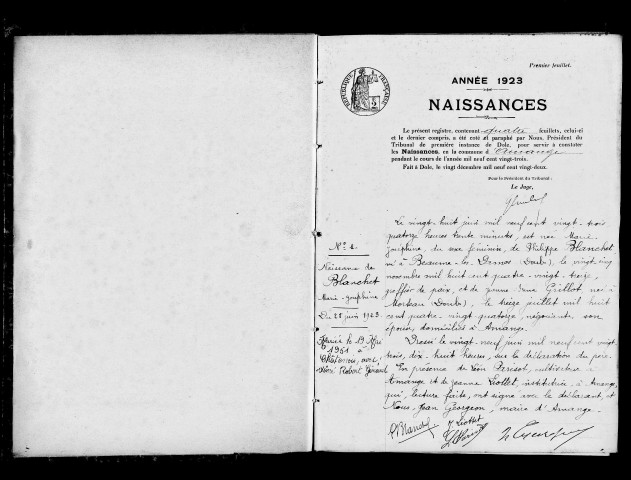 Premier feuillet.
ANNÉE 1923
NAISSANCES
RÉPUBLIQUE FRANÇAISE
Le présent registre, contenant quatre feuillets, celui-ci
et le dernier compris, a été coté et paraphé par Nous, Président du
Tribunal de première instance de Dole, pour servir à constater
les Naissances, en la commune d'Amange
pendant le cours de l'année mil neuf cent vingt-trois.
Fait à Dole, le vingt décembre mil neuf cent vingt-deux.
Pour le Président du Tribunal :
Le Juge,
N° 1.
Naissance de
Blanchet
Marie-Joséphine
Du 28 juin 1923.
Mariée le 19 Mai
1951 à
avec
Robert
Le vingt-huit juin mil neuf cent vingt-trois
quatorze heures trente minutes, est née Marie-
Joséphine, du sexe féminin, de Philippe Blanchet
né à Beaume-les-Dames (Doubs), le vingt-cinq
novembre mil huit cent quatre-vingt-treize,
greffier de paix, et de Jeanne Grillot, née à
Morteau (Doubs), le treize juillet mil huit
cent quatre-vingt quatorze, négociante, son
épouse, domiciliés à Amange.
Dressé le vingt-neuf juin mil neuf cent vingt-
trois, dix-huit heures, sur la déclaration du père.
En présence de Léon, cultivateur à
Amange et de Jeanne Liottet, institutrice, à Amange,
qui, lecture faite, ont signé avec le déclarant, et
Nous, Jean Georgeon, maire d'Amange.
J Liottet